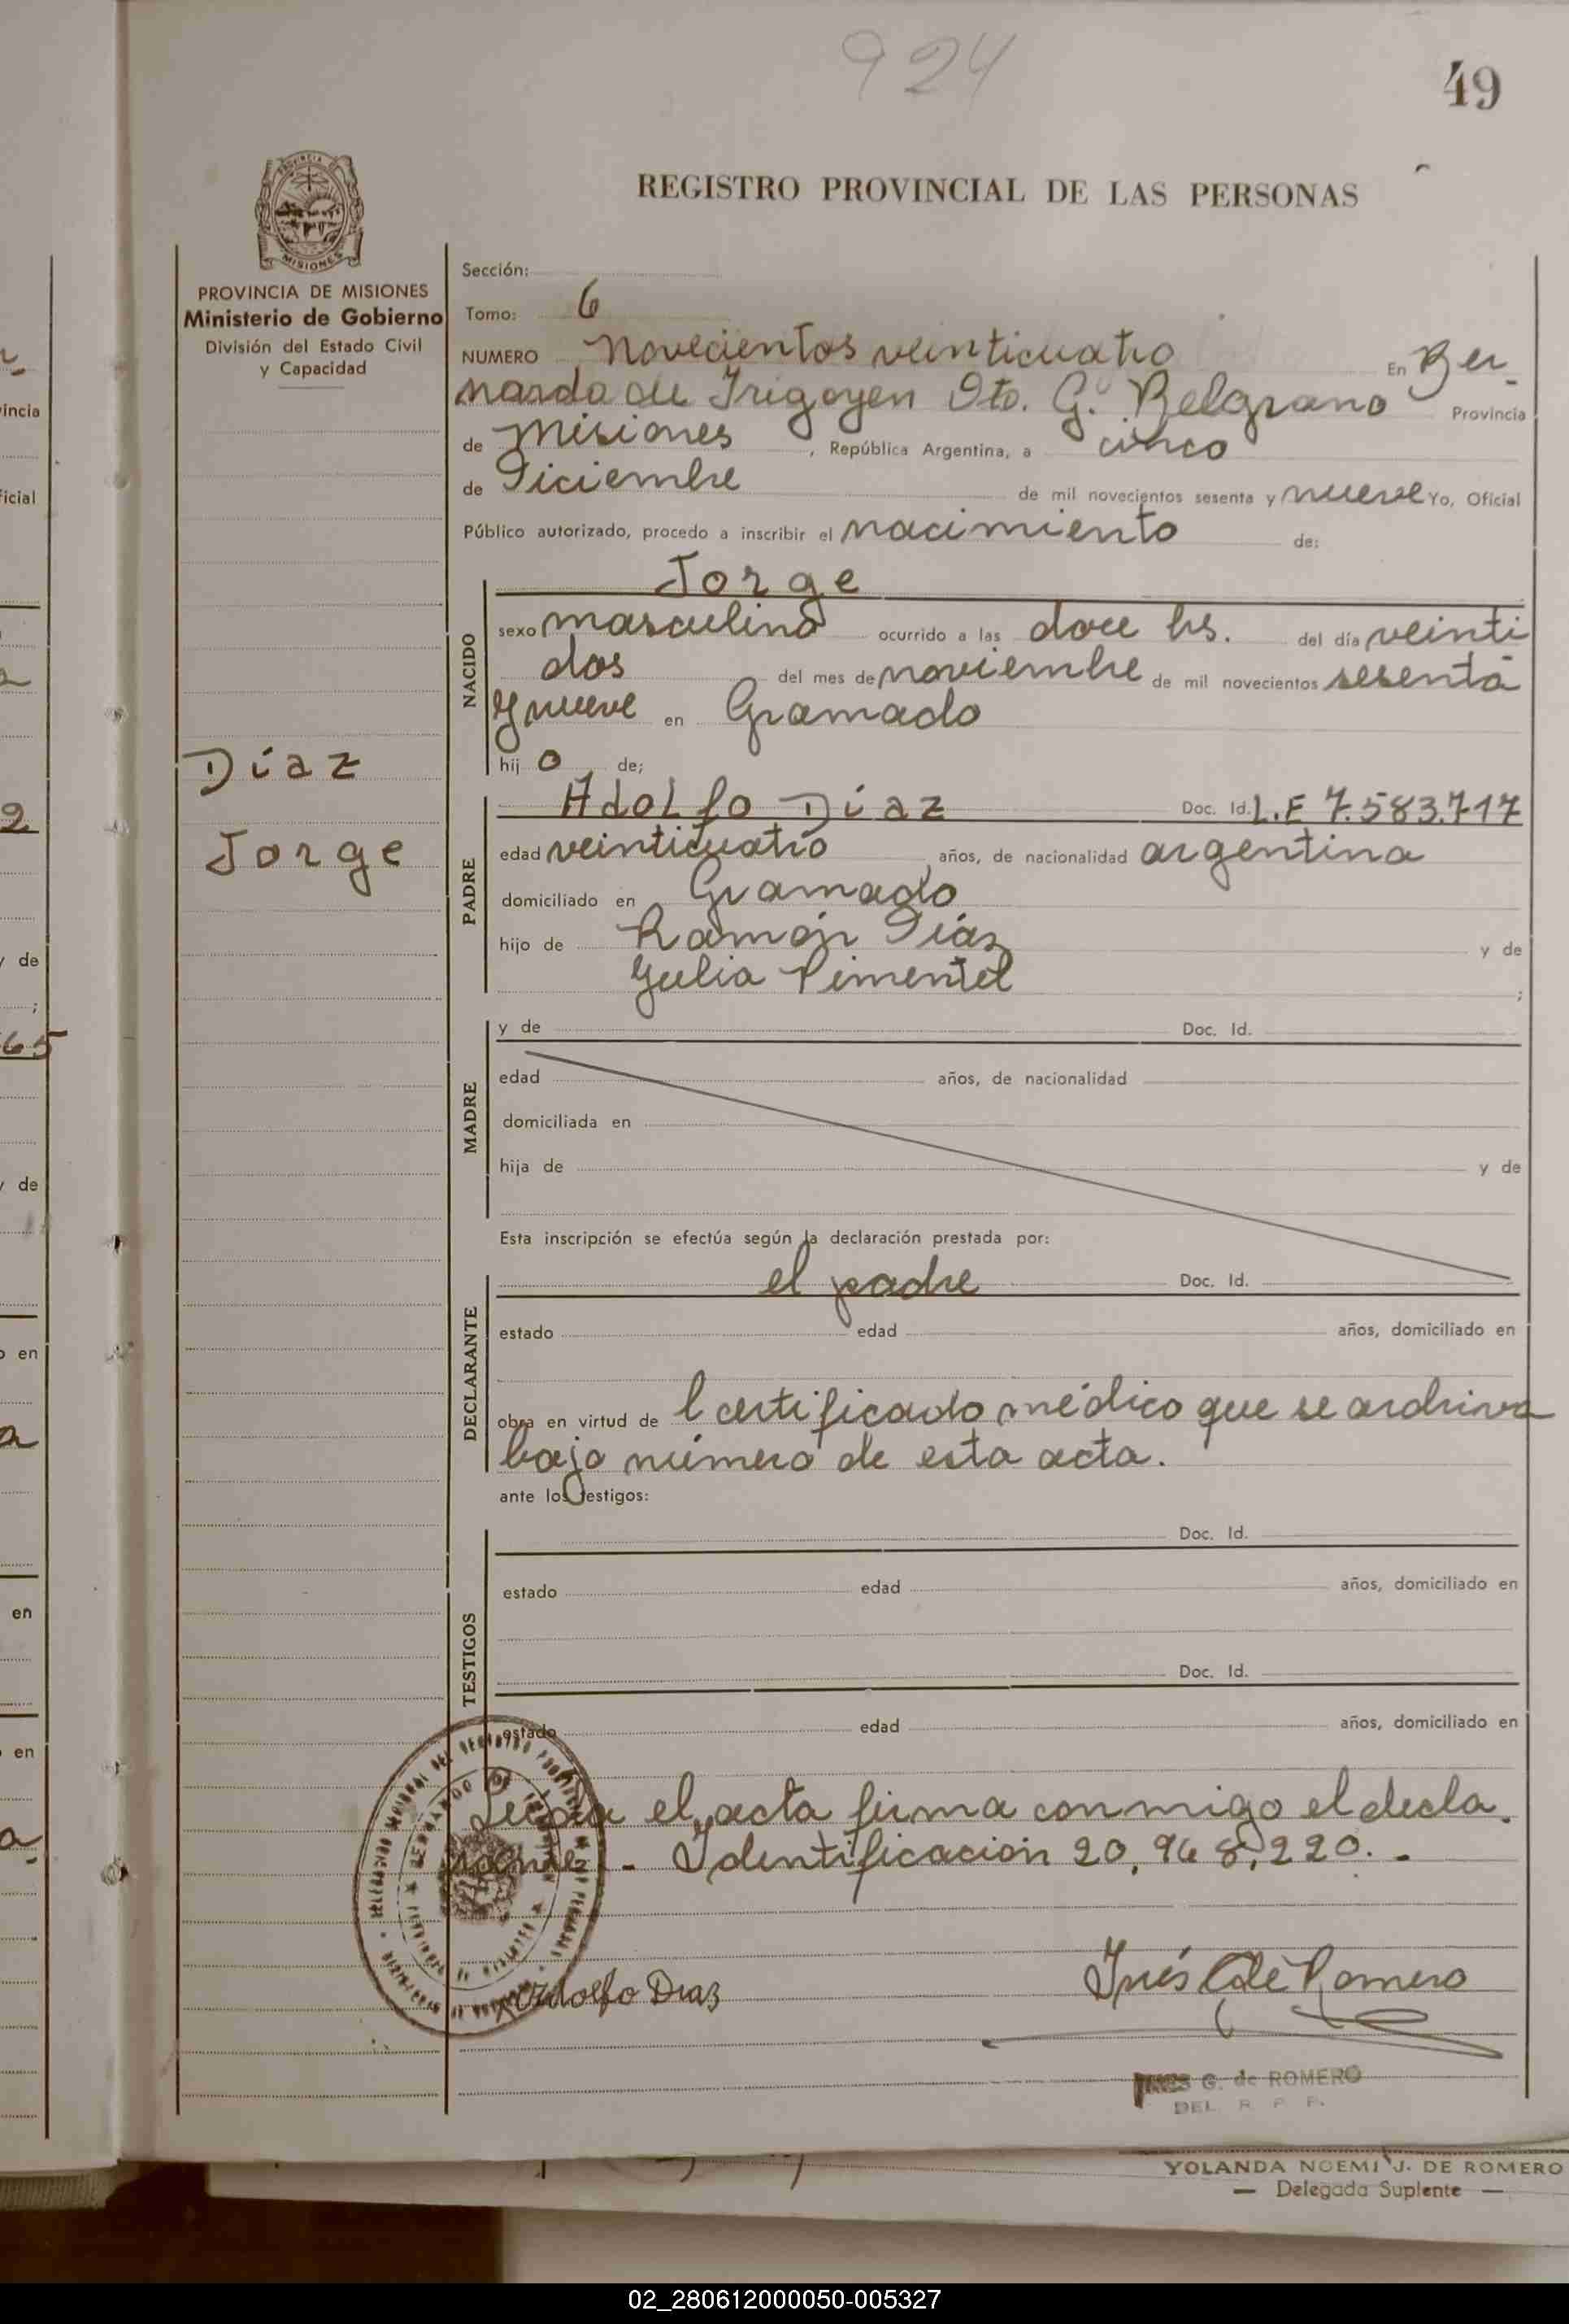 924
49
REGISTRO PROVINCIAL DE LAS PERSONAS
PROVINCIA
MISIONES
PROVINCIA DE MISIONES
Ministerio de Gobierno
División del Estado Civil
y Capacidad
Sección:
Tomo: 6
NUMERO novecientos veinticuatro En Ber-
nardo de Irigoyen Dto. G. Belgrano Provincia
de Misiones, República Argentina, a cinco
de Diciembre de mil novecientos sesenta y nueve Yo, Oficial
Público autorizado, procedo a inscribir el nacimiento de:
NACIDO
Jorge
sexo masculino ocurrido a las doce hs. del día veinti
dos del mes de noviembre de mil novecientos sesenta
y nueve en Gramado
hijo de;
Díaz
Jorge
PADRE
Adolfo Díaz Doc. Id. L.E 7.583.717
edad veinticuatro años, de nacionalidad argentina
domiciliado en Gramado
hijo de Ramón Diáz y de
Julia Pimentel ;
MADRE
y de Doc. Id.
edad años, de nacionalidad
domiciliada en
hija de y de
Esta inscripción se efectúa según la declaración prestada por:
DECLARANTE
el padre Doc. Id.
estado edad años, domiciliado en
obra en virtud de l certificado médico que se archiva
bajo número de esta acta.
ante los testigos:
TESTIGOS
Doc. Id.
estado edad años, domiciliado en
Doc. Id.
estado edad años, domiciliado en
Leída el acta firma conmigo el decla.
rante. - Identificación 20.968.220. -
Adolfo Diaz
Inés G de Romero
INES G. de ROMERO
DEL R P P.
YOLANDA NOEMI J. DE ROMERO
— Delegada Suplente —
02_280612000050-005327